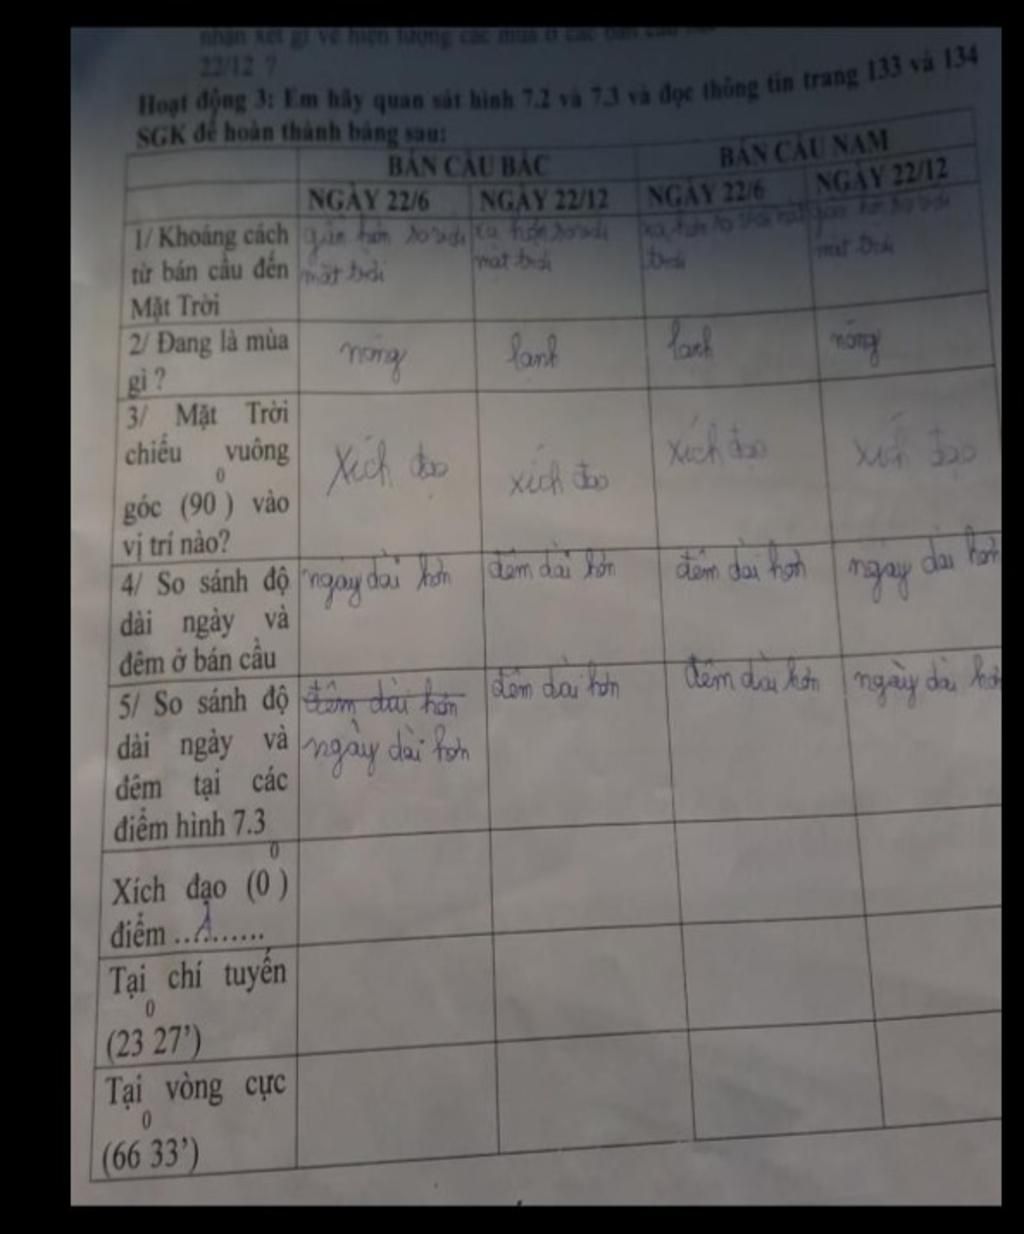 nhận xét gì về hiện tượng các mùa ở các bán cầu
22/12 ?
Hoạt động 3: Em hãy quan sát hình 7.2 và 7.3 và đọc thông tin trang 133 và 134
SGK để hoàn thành bảng sau:
BÁN CẦU BẮC BÁN CẦU NAM
NGÀY 22/6 NGÀY 22/12 NGÀY 22/6 NGÀY 22/12
1/ Khoảng cách
từ bán cầu đến
Mặt Trời
gần hơn so với
mặt trời
xa hơn so với
mặt trời
xa hơn so với mặt
trời
gần hơn so với
mặt trời
2/ Đang là mùa
gì ?
nóng
lanh
lanh
nóng
3/ Mặt Trời
chiếu vuông
0
góc (90 ) vào
vị trí nào?
xích đạo
xích đạo
xích đạo
xích đạo
4/ So sánh độ
dài ngày và
đêm ở bán cầu
ngày dài hơn
đêm dài hơn
đêm dài hơn
ngày dài hơn
5/ So sánh độ
dài ngày và
đêm tại các
điểm hình 7.3
đêm dài hơn
ngày dài hơn
đêm dài hơn
đêm dài hơn
ngày dài hơn
0
Xích đạo (0 )
điểm ...A.......
Tại chí tuyến
0
(23 27’)
Tại vòng cực
0
(66 33’)